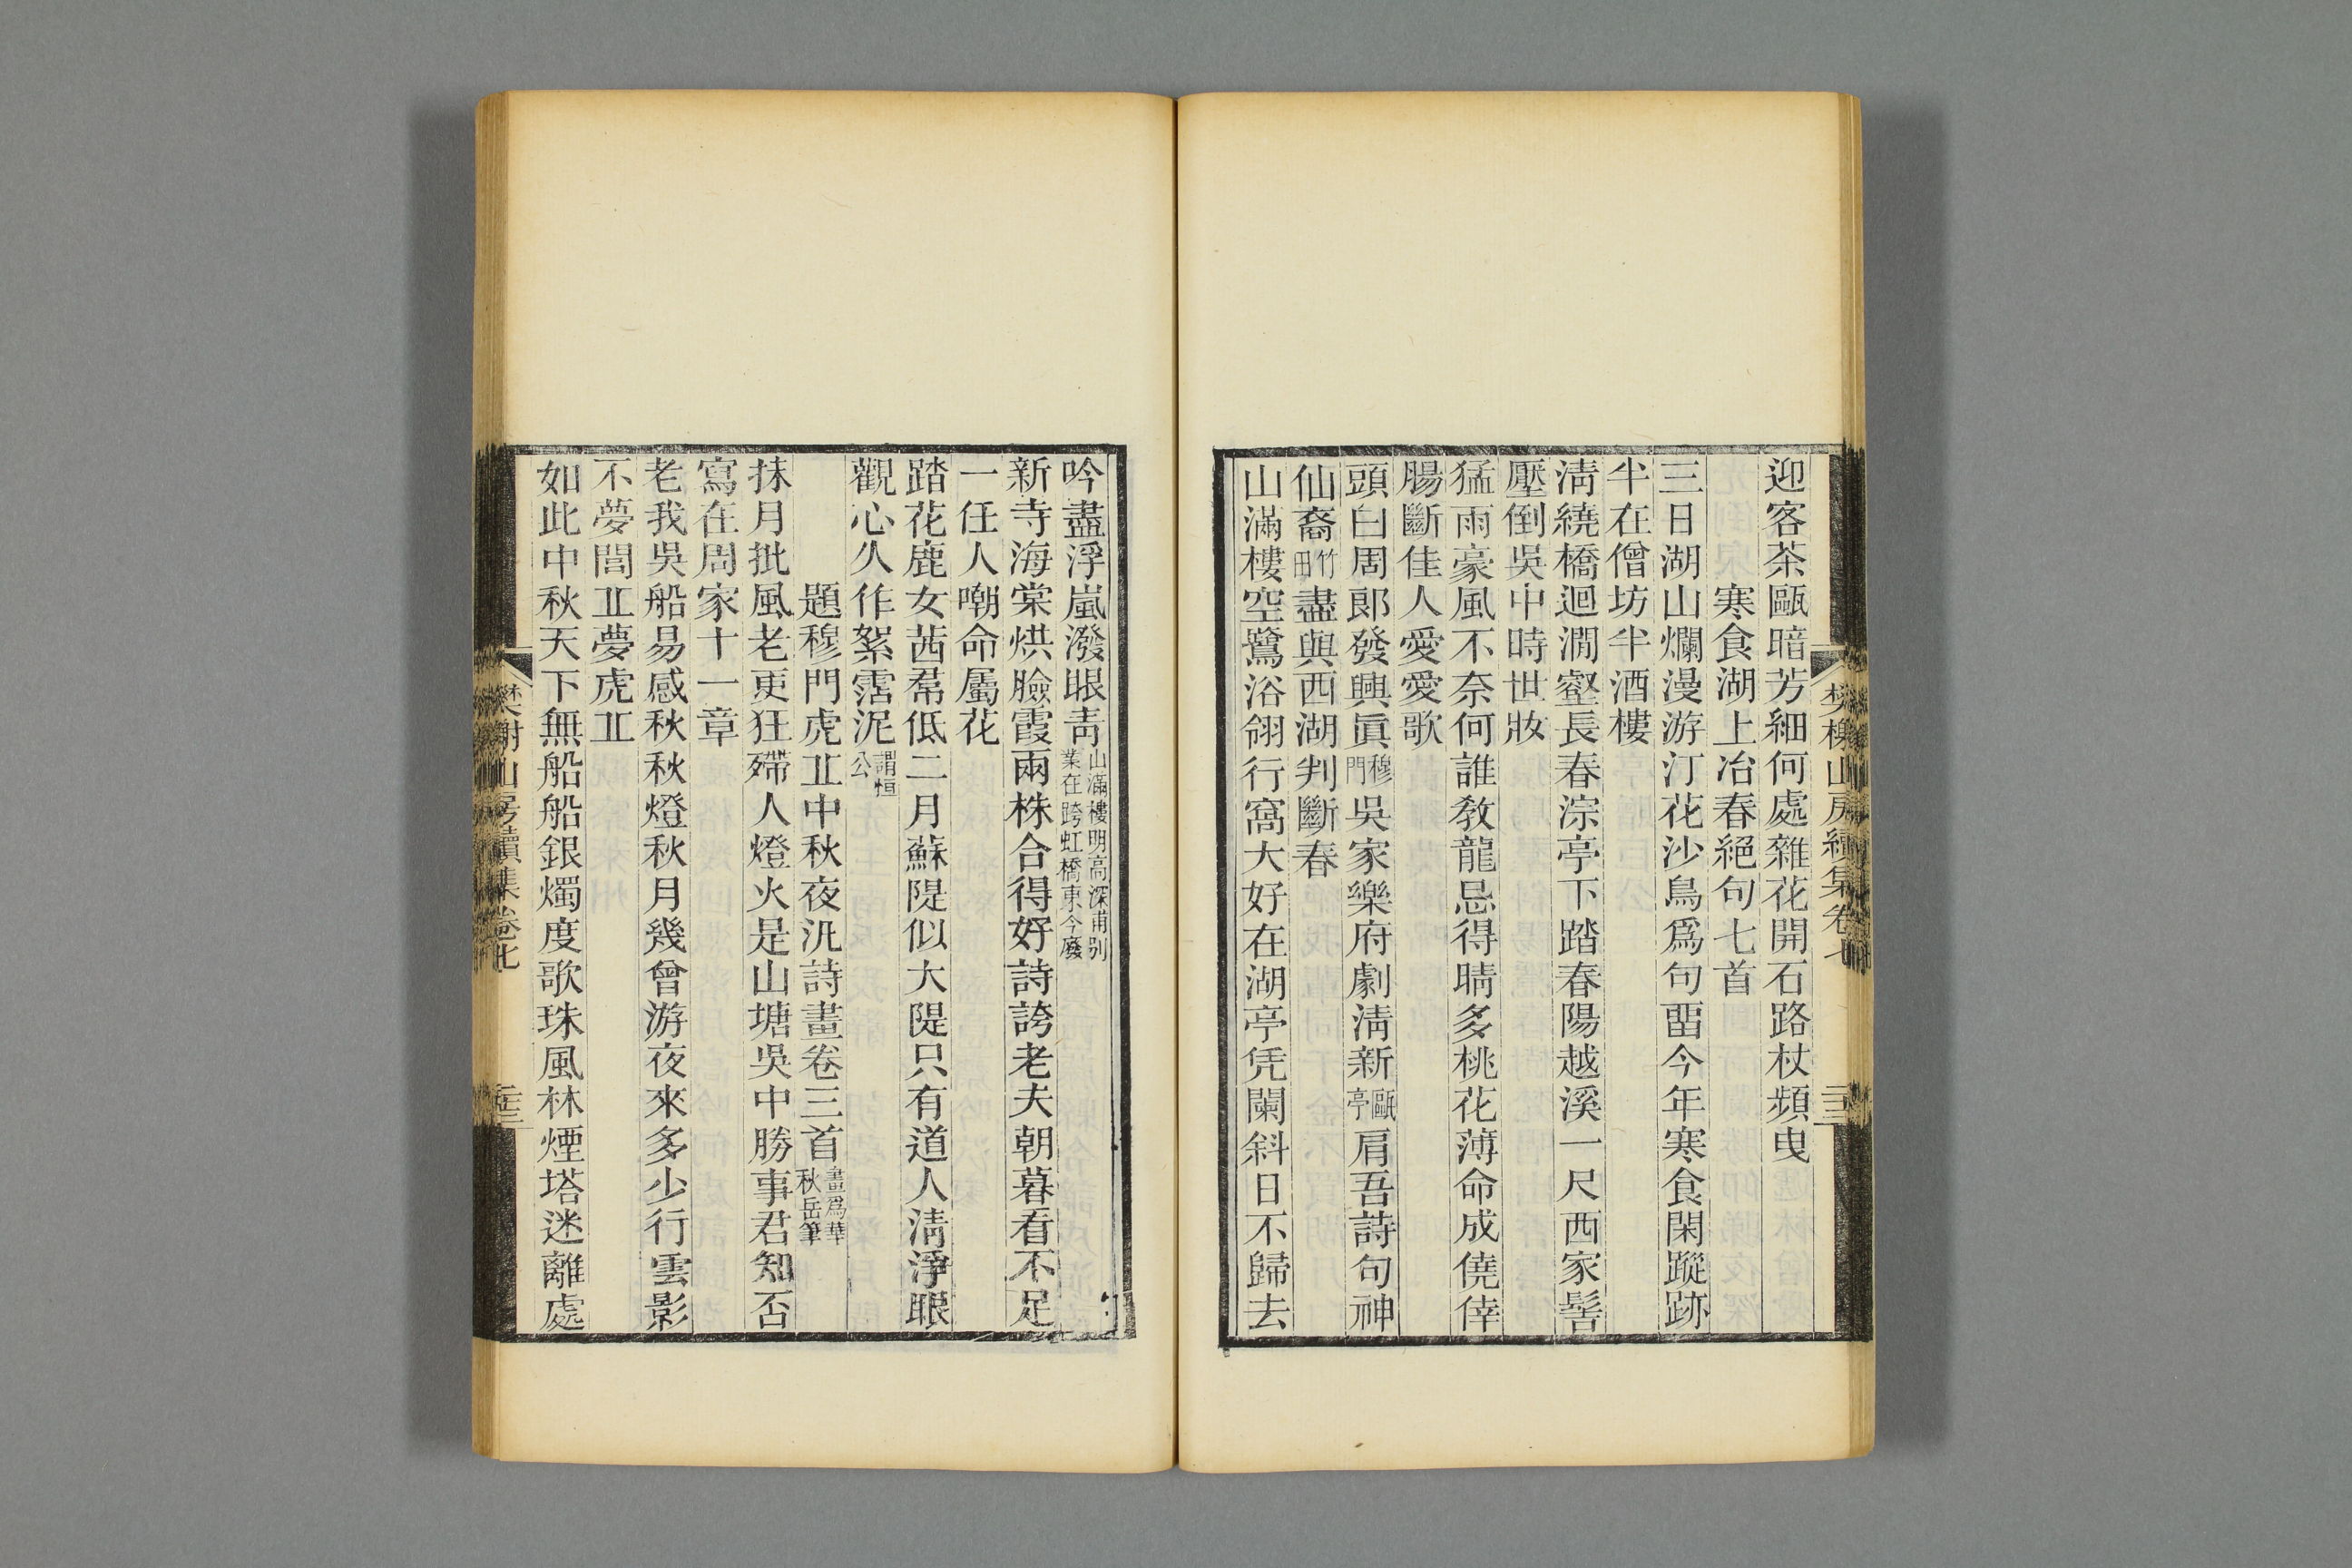 樊榭山房續集卷七
迎客茶甌暗芳細何處雜花開石路杖頻曳
寒食湖上冶春絕句七首
三日湖山爛漫游汀花沙鳥爲句畱今年寒食閑蹤跡
半在僧坊半酒樓
淸繞橋迴澗壑長春淙亭下踏春陽越溪一尺西家髻
壓倒吳中時世妝
猛雨豪風不奈何誰敎龍忌得晴多桃花薄命成僥倖
腸斷佳人愛愛歌
頭白周郎發興眞穆門吳家樂府劇淸新甌亭肩吾詩句神
仙裔竹田盡與西湖判斷春
山滿樓空鷺浴翎行窩大好在湖亭凭闌斜日不歸去
吟盡浮嵐潑眼靑山滿樓明高深甫别業在跨虹橋東今廢
新寺海棠烘臉霞兩株合得好詩誇老夫朝暮看不足
一任人嘲命屬花
踏花鹿女茜帬低二月蘇隄似大隄只有道人淸淨眼
觀心久作絮霑泥謂恒公
題穆門虎丠中秋夜汎詩畫卷三首畫爲華秋岳筆
抹月批風老更狂殢人燈火是山塘吳中勝事君知否
寫在周家十一章
老我吳船易感秋秋燈秋月幾曾游夜來多少行雲影
不夢閶丠夢虎丠
如此中秋天下無船船銀燭度歌珠風林煙塔迷離處
樊榭山房續集卷七